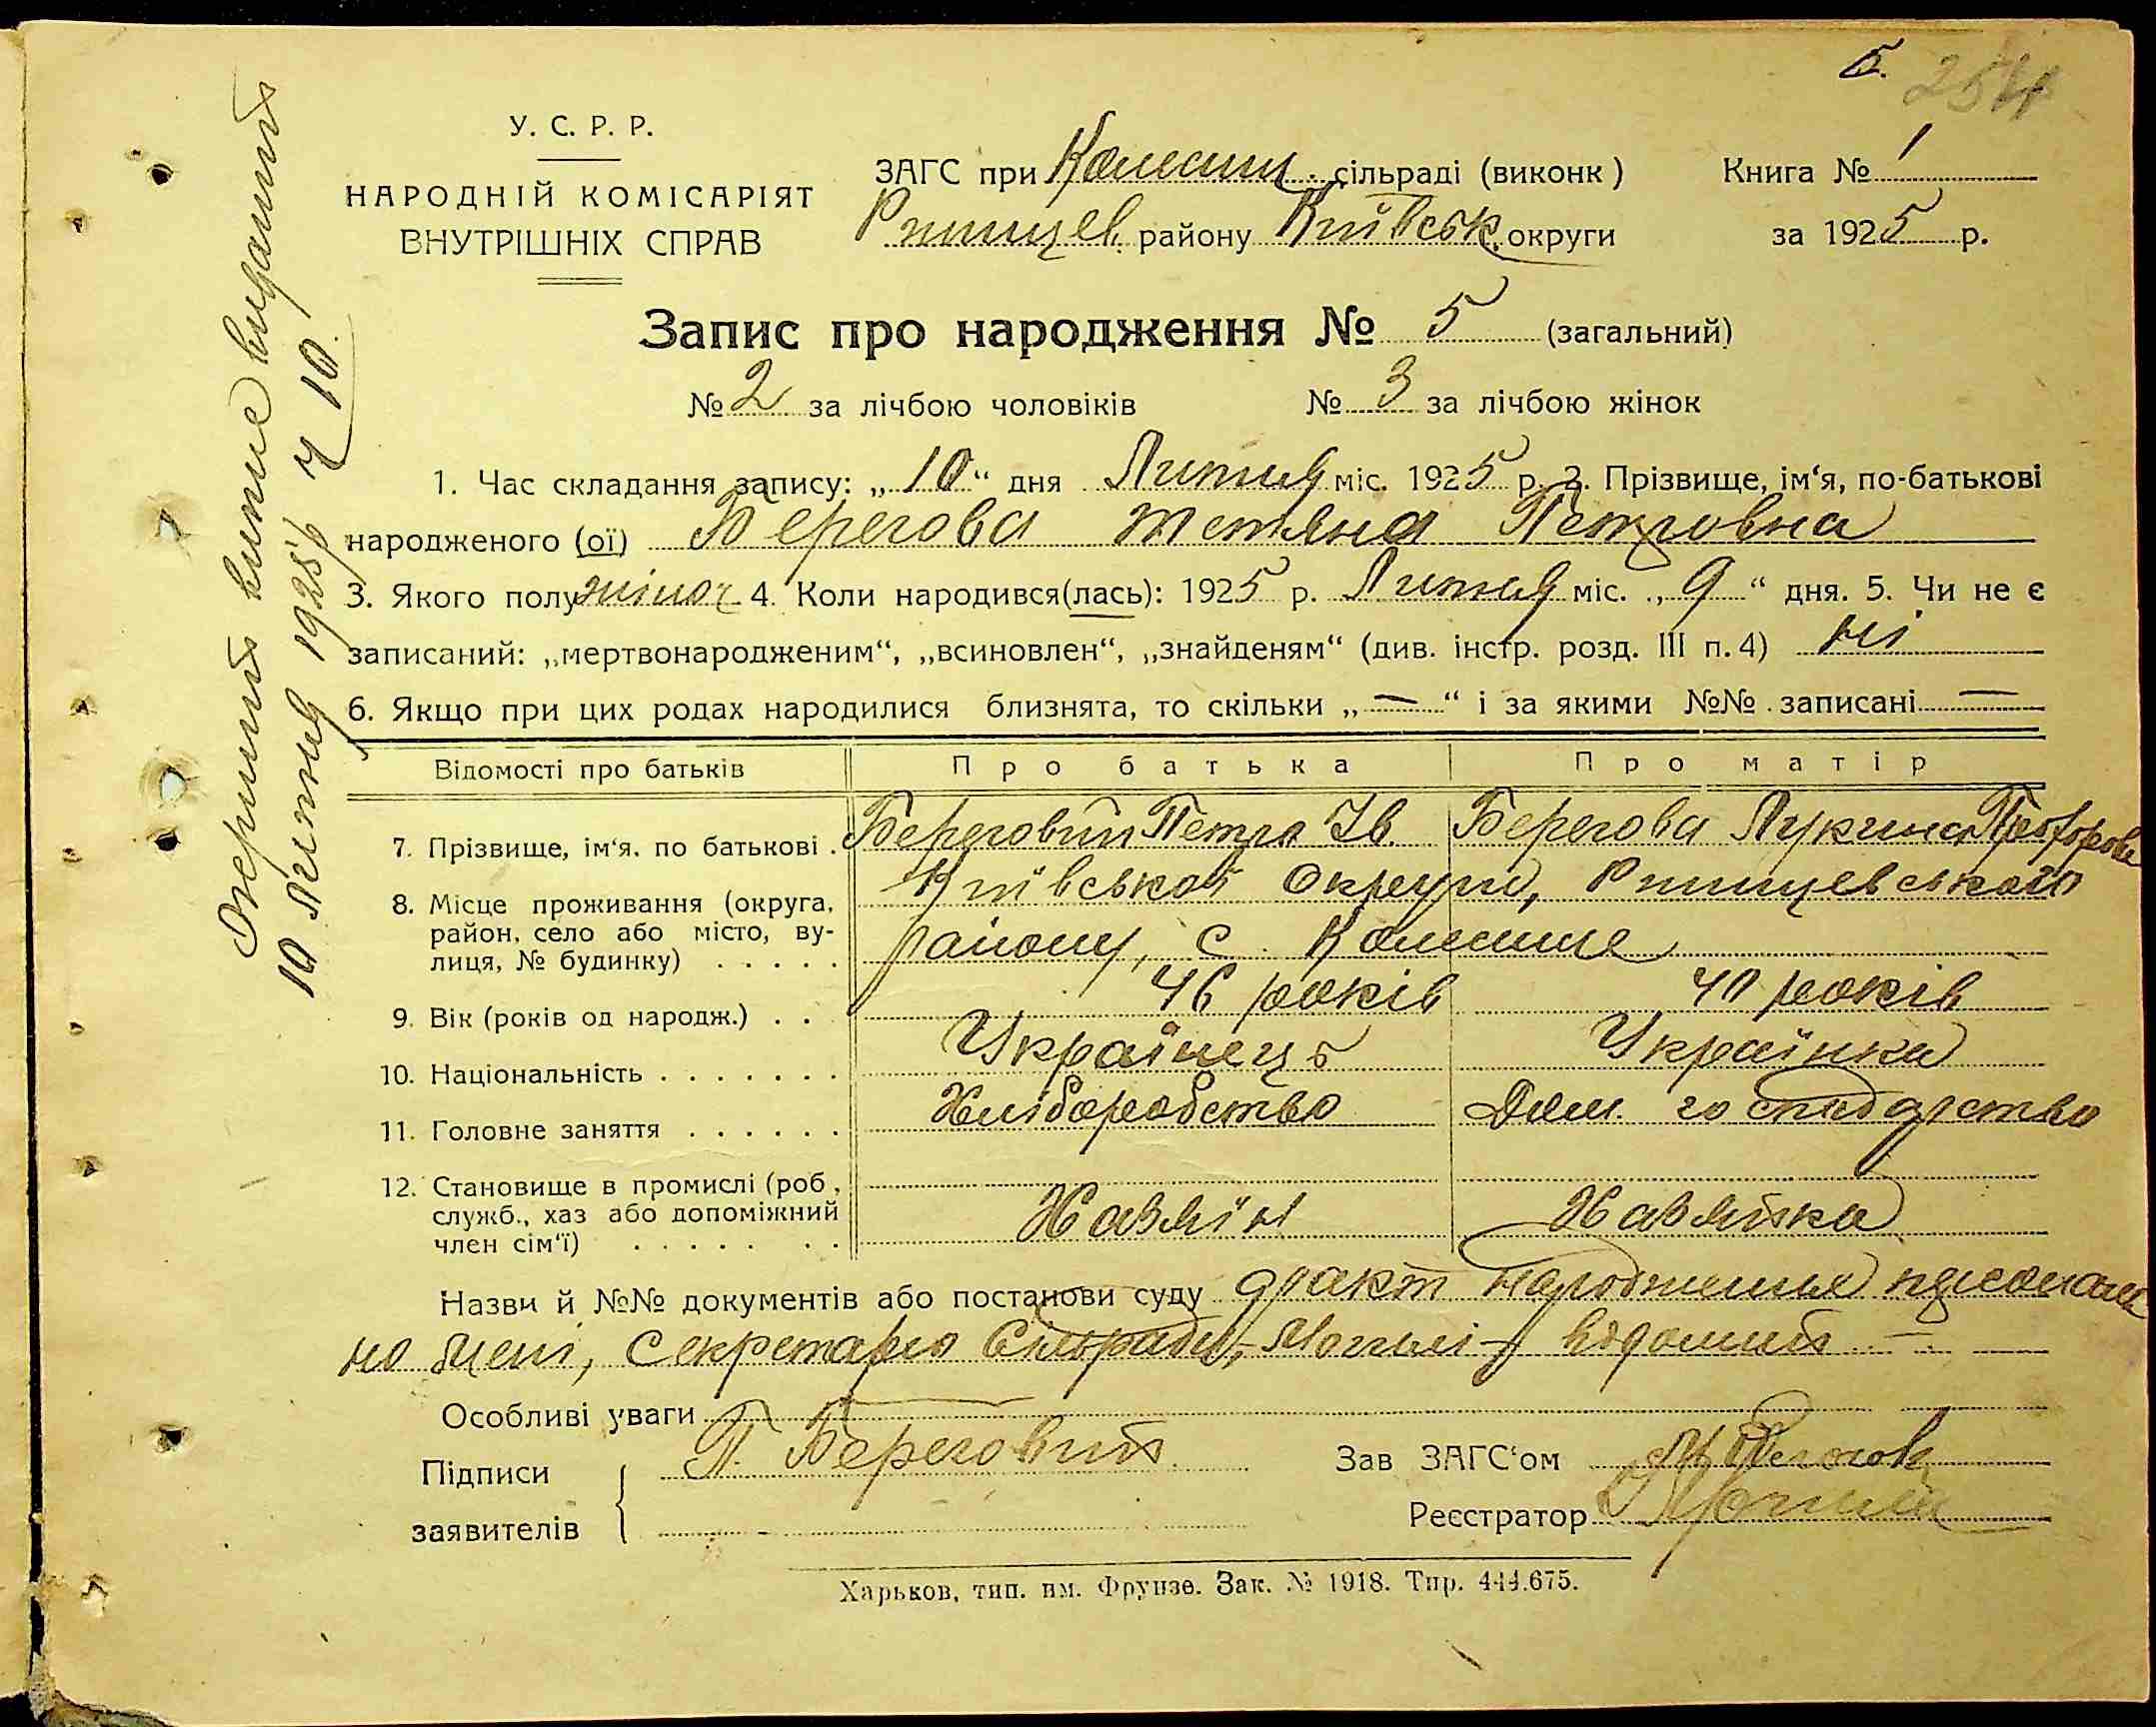 5. 254
У. С. Р. Р.
НАРОДНІЙ КОМІСАРІЯТ
ВНУТРІШНІХ СПРАВ
ЗАГС при сільраді (виконк)
Ршищев. району Київськ. округи
Книга № 1
за 1925 р.
Запис про народження № 5 (загальний)
№ 2 за лічбою чоловіків № 3 за лічбою жінок
1. Час складання запису: „10“ дня Липня міс. 1925 р. 2. Прізвище, ім‘я, по-батькові
народженого (ої) Берегова Тетяна Петровна
3. Якого полу жіноч. 4. Коли народився(лась): 1925 р. Липня міс. „9“ дня. 5. Чи не є
записаний: „мертвонародженим“, „всиновлен“, „знайденям“ (див. інстр. розд. III п. 4) ні
6. Якщо при цих родах народилися близнята, то скільки „—“ і за якими №№ записані —
Відомості про батьків Про батька Про матір
7. Прізвище, ім‘я, по батькові . Береговий Петро Ів. Берегова Лукина
8. Місце проживання (округа,
район, село або місто, ву-
лиця, № будинку) . . . . .
Київської Округи, Ршищевського
району, с.
9. Вік (років од народж.) . . 46 років 40 років
10. Національність . . . . . . . Українець Українка
11. Головне заняття . . . . . . Хліборобство Дом. господарство
12. Становище в промислі (роб.,
служб., хаз або допоміжний
член сім‘ї) . . . . . . .
Хазяїн Хазяйка
Назви й №№ документів або постанови суду факт народження
но мені, секретарю Сільради, відомий —
Особливі уваги
Підписи
заявителів
П. Береговий
Зав ЗАГС‘ом
Реєстратор
Харьков, тип. им. Фрунзе. Зак. № 1918. Тир. 444.675.
Одержит виписе виданий
10 Липня 1925 р. ч 10.